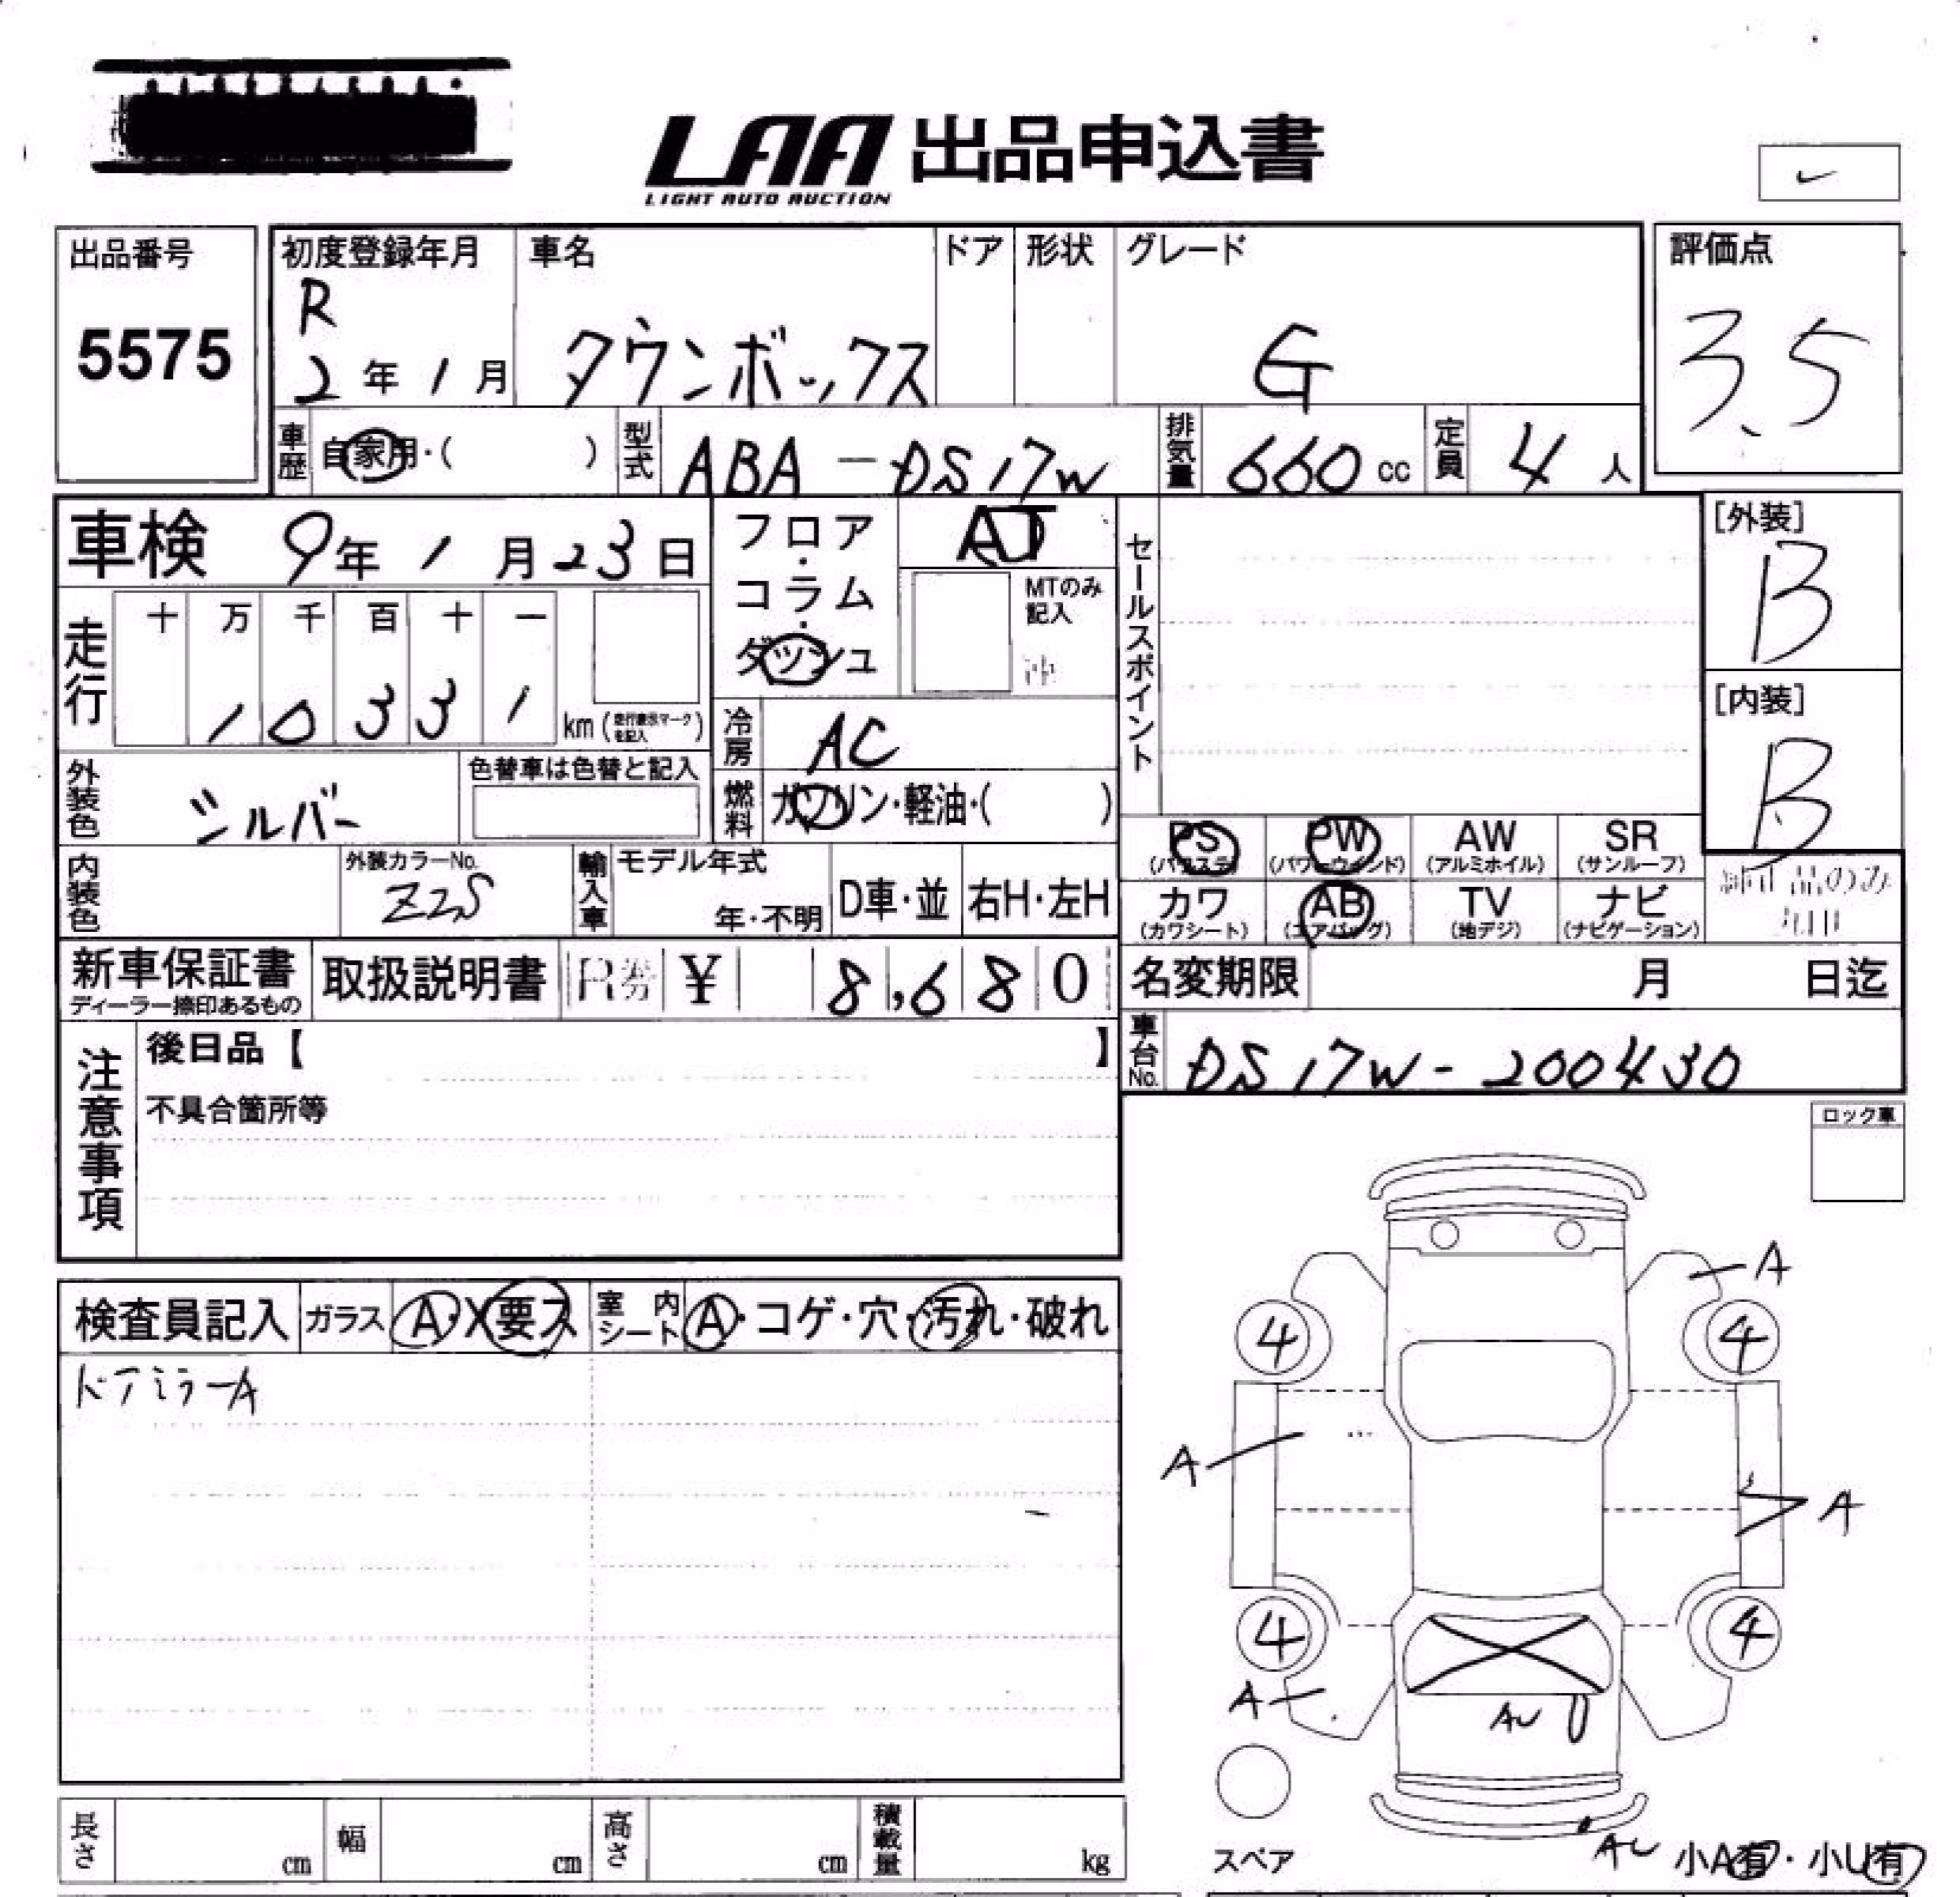 LAA 出品申込書
LIGHT AUTO AUCTION
出品番号
5575
初度登録年月
R
2年1月
車名
タウンボックス
ドア
形状
グレード
G
評価点
3.5
車歴 自家用・( )
型式 ABA-DS17W
排気量 660cc
定員 4人
車検 9年1月23日
フロア・コラム・ダッシュ
AT
MTのみ記入
セールスポイント
[外装]
B
[内装]
B
走行
十 万 千 百 十 一
1 0 3 3 1 km (走行表示マークを記入)
冷房 AC
外装色 シルバー
色替車は色替と記入
燃料 ガソリン・軽油・( )
PS (パワステ)
PW (パワーウィンド)
AW (アルミホイル)
SR (サンルーフ)
内装色
外装カラーNo.
Z2S
輸入車
モデル年式
年・不明
D車・並
右H・左H
カワ (カワシート)
AB (エアバッグ)
TV (地デジ)
ナビ (ナビゲーション)
新車保証書
ディーラー捺印あるもの
取扱説明書
R券 ¥ 8,680
名変期限 月 日迄
車台No. DS17W-200430
注意事項
後日品【 】
不具合箇所等
ロック車
検査員記入
ガラス A・X要ス
室内シート A・コゲ・穴・汚れ・破れ
ドアミラーA
A
4
4
A
A
4
4
A
AU
スペア
AU
小A有・小U有
長さ cm
幅 cm
高さ cm
積載量 kg